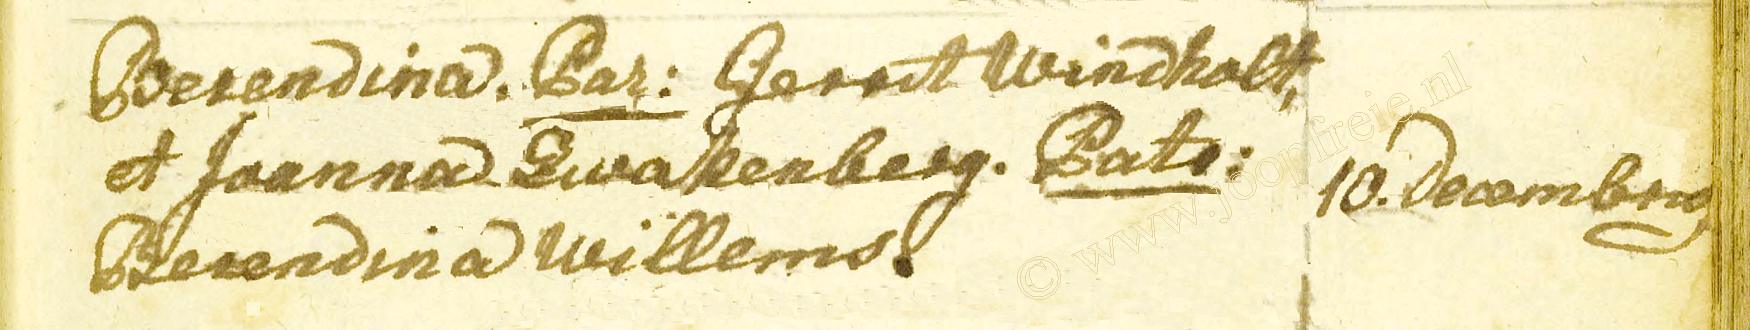 Berendina. Par: Gerrit Windholt,
et Joanna Swakenberg. Patr:
Berendina Willems.
10. Decembris
© www.joopfreie.nl